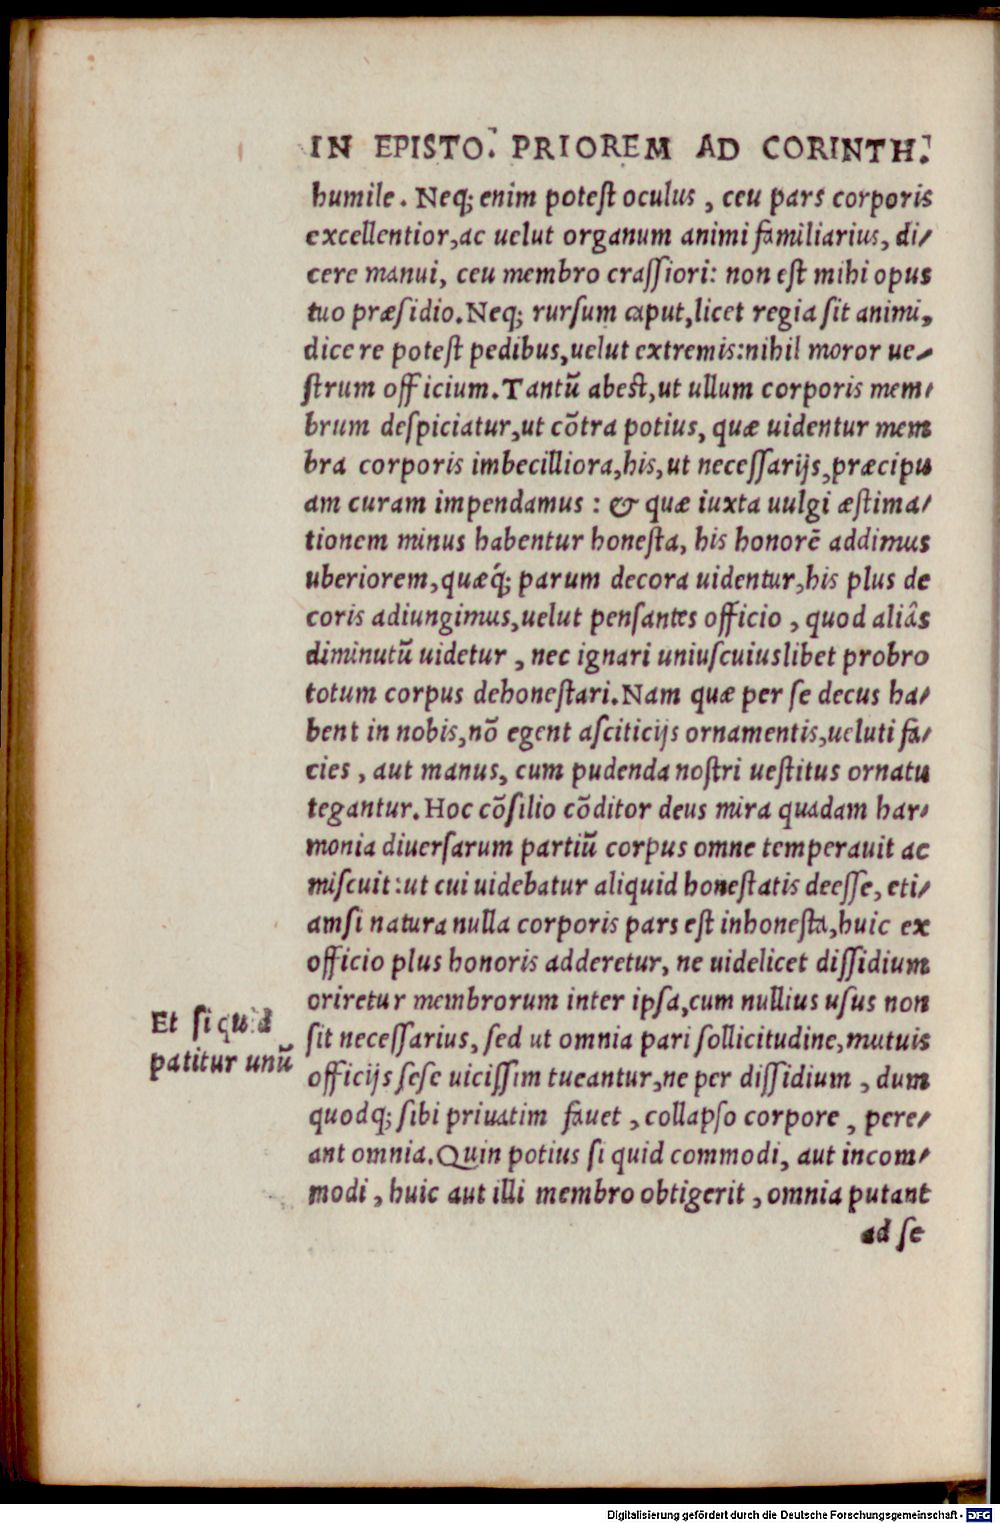 IN EPISTO. PRIOREM AD CORINTH.
humile. Neq; enim poteſt oculus, ceu pars corporis
excellentior, ac uelut organum animi familiarius, di/
cere manui, ceu membro craſſiori: non eſt mihi opus
tuo præſidio. Neq; rurſum caput, licet regia ſit animi,
dicere poteſt pedibus, uelut extremis: nihil moror ue/
ſtrum officium. Tantũ abeſt, ut ullum corporis mem/
brum deſpiciatur, ut cõtra potius, quæ uidentur mem
bra corporis imbecilliora, his, ut neceſſarijs, præcipu
am curam impendamus: & quæ iuxta uulgi æſtima/
tionem minus habentur honeſta, his honorẽ addimus
uberiorem, quæq́; parum decora uidentur, his plus de
coris adiungimus, uelut penſantes officio, quod aliâs
diminutũ uidetur, nec ignari uniuſcuiuslibet probro
totum corpus dehoneſtari. Nam quæ per ſe decus ha/
bent in nobis, nõ egent aſciticijs ornamentis, ueluti fa/
cies, aut manus, cum pudenda noſtri ueſtitus ornatu
tegantur. Hoc cõſilio cõditor deus mira quadam har/
monia diuerſarum partiũ corpus omne temperauit ac
miſcuit: ut cui uidebatur aliquid honeſtatis deeſſe, eti/
amſi natura nulla corporis pars eſt inhoneſta, huic ex
officio plus honoris adderetur, ne uidelicet diſſidium
oriretur membrorum inter ipſa, cum nullius uſus non
Et ſi quid
patitur unũ
ſit neceſſarius, ſed ut omnia pari ſollicitudine, mutuis
officijs ſeſe uiciſſim tueantur, ne per diſſidium, dum
quodq; ſibi priuatim fauet, collapſo corpore, pere/
ant omnia. Quin potius ſi quid commodi, aut incom/
modi, huic aut illi membro obtigerit, omnia putant
ad ſe
Digitalisierung gefördert durch die Deutsche Forschungsgemeinschaft - DFG